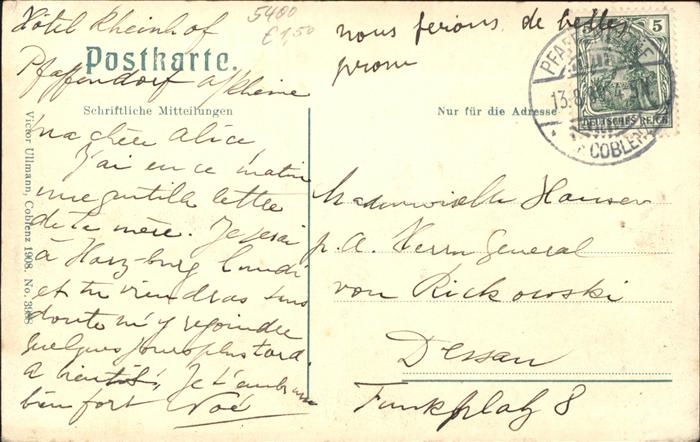 Hôtel Rheinhof
Pfaffendorf a/Rheine
5400
€1,50
nous ferons de belles
prom
Postkarte.
Schriftliche Mitteilungen
Nur für die Adresse
5
DEUTSCHES REICH
13.8.
COBLENZ
ma chère Alice,
J'ai eu ce matin
une gentille lettre
de ta mère. Je serai
à Harzburg lundi
et tu viendras sans
doute m'y rejoindre
quelques jours plus tard.
A bientôt! Je t'embrasse
bien fort Noé
Mademoiselle Hansen
p. A. Herrn General
von Rickowski
Dessau
Funkplatz 8
Victor Ullmann, Coblenz 1908. No.